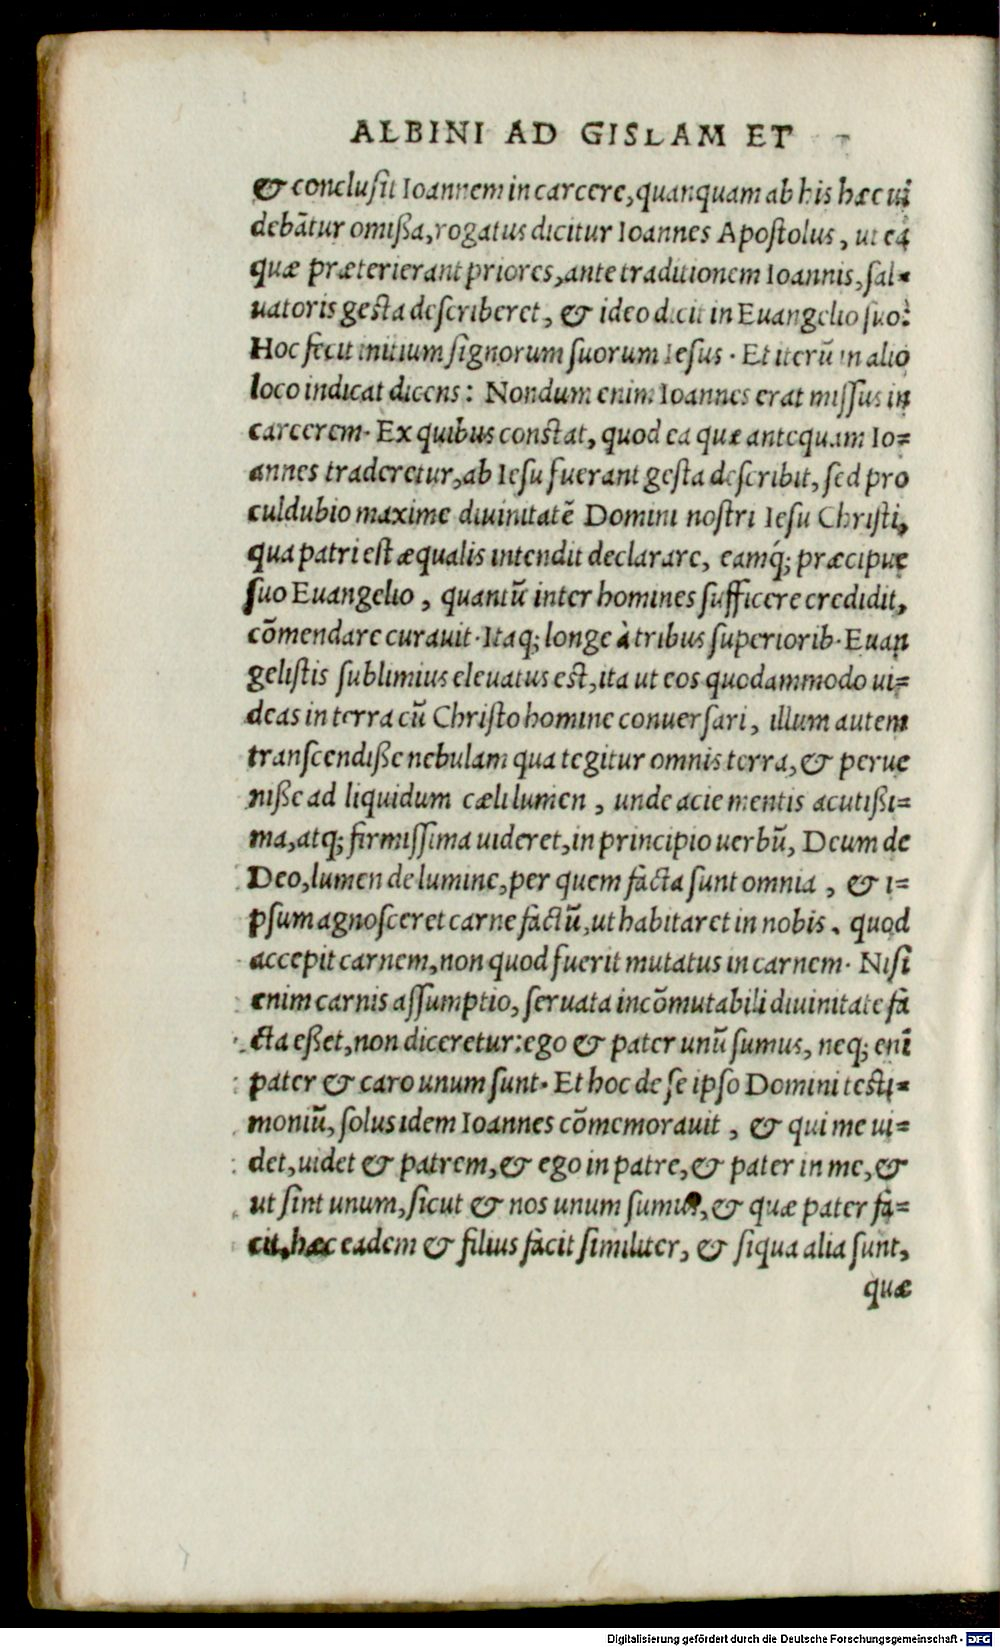 ALBINI AD GISLAM ET
& conclusit Ioannem in carcere, quanquam ab his hæc uĩ
debãtur omißa, rogatus dicitur Ioannes Apostolus, ut ea
quæ præterierant priores, ante traditionem Ioannis, sal=
uatoris gesta describeret, & ideo dicit in Euangelio suo:
Hoc fecit initium signorum suorum Iesus. Et iterũ in alio
loco indicat dicens: Nondum enim Ioannes erat missus in
carcerem. Ex quibus constat, quod ea quæ antequam Io=
annes traderetur, ab Iesu fuerant gesta describit, sed pro
culdubio maxime diuinitatẽ Domini nostri Iesu Christi,
qua patri est æqualis intendit declarare, eamq́; præcipue
suo Euangelio, quantũ inter homines sufficere credidit,
cõmendare curauit. Itaq; longe à tribus superiorib. Euan
gelistis sublimius eleuatus est, ita ut eos quodammodo ui=
deas in terra cũ Christo homine conuersari, illum autem
transcendiße nebulam qua tegitur omnis terra, & perue
niße ad liquidum cæli lumen, unde acie mentis acutißi=
ma, atq; firmissima uideret, in principio uerbũ, Deum de
Deo, lumen de lumine, per quem facta sunt omnia, & i=
psum agnosceret carne factũ, ut habitaret in nobis, quod
accepit carnem, non quod fuerit mutatus in carnem. Nisi
enim carnis assumptio, seruata incõmutabili diuinitate fa
cta eßet, non diceretur: ego & pater unũ sumus, neq; enĩ
pater & caro unum sunt. Et hoc de se ipso Domini testi=
moniũ, solus idem Ioannes cõmemorauit, & qui me ui=
det, uidet & patrem, & ego in patre, & pater in me, &
ut sint unum, sicut & nos unum sumus, & quæ pater fa=
cit, hæc eadem & filius facit similiter, & siqua alia sunt,
quæ
Digitalisierung gefördert durch die Deutsche Forschungsgemeinschaft - DFG